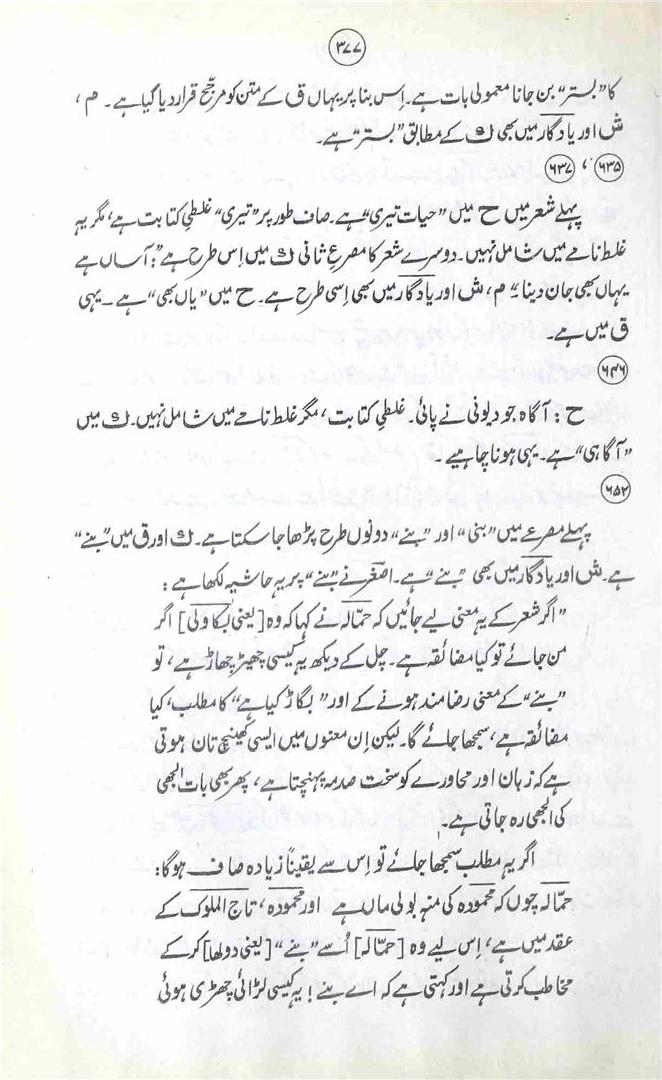 ۳۷۷
کا ”بستر“ بن جانا معمولی بات ہے۔ اِس بنا پر یہاں ق کے متن کو مرجّح قرار دیا گیا ہے۔ م،
ش اور یادگار میں بھی ک کے مطابق ”بستر“ ہے۔
۶۳۵، ۶۳۷
پہلے شعر میں ح میں ”حیات تیری“ ہے۔ صاف طور پر ”تیری“ غلطیِ کتابت ہے، مگر یہ
غلط نامے میں شامل نہیں۔ دوسرے شعر کا مصرعِ ثانی ک میں اِس طرح ہے: ”آساں ہے
یہاں بھی جان دینا“۔ م، ش اور یادگار میں بھی اِسی طرح ہے۔ ح میں ”یاں بھی“ ہے۔ یہی
ق میں ہے۔
۶۴۶
ح : آگاہ جو دیونی نے پائی۔ غلطیِ کتابت، مگر غلط نامے میں شامل نہیں۔ ک میں
”آگاہی“ ہے۔ یہی ہونا چاہیے۔
۶۵۲
پہلے مصرعے میں ”بنی“ اور ”بنے“ دونوں طرح پڑھا جا سکتا ہے۔ ک اور ق میں ”بنے“
ہے۔ ش اور یادگار میں بھی ”بنے“ ہے۔ اصغر نے ”بنے“ پر یہ حاشیہ لکھا ہے:
”اگر شعر کے یہ معنی لیے جائیں کہ حمّالہ نے کہا کہ وہ [یعنی بکاولی] اگر
من جائے تو کیا مضائقہ ہے۔ چل کے دیکھ یہ کیسی چھیڑ چھاڑ ہے، تو
”بنے“ کے معنی رضامند ہونے کے اور ”بگاڑ کیا ہے“ کا مطلب، کیا
مضائقہ ہے، سمجھا جائے گا۔ لیکن اِن معنوں میں ایسی کھینچ تان ہوتی
ہے کہ زبان اور محاورے کو سخت صدمہ پہنچتا ہے، پھر بھی بات الجھی
کی الجھی رہ جاتی ہے۔
اگر یہ مطلب سمجھا جائے تو اِس سے یقیناً زیادہ صاف ہوگا:
حمّالہ چوں کہ محمودہ کی منہ بولی ماں ہے اور محمودہ، تاج الملوک کے
عقد میں ہے، اِس لیے وہ [حمّالہ] اُسے ”بنے“ [یعنی دولھا] کر کے
مخاطب کرتی ہے اور کہتی ہے کہ اے بنے! یہ کیسی لڑائی چھڑی ہوئی